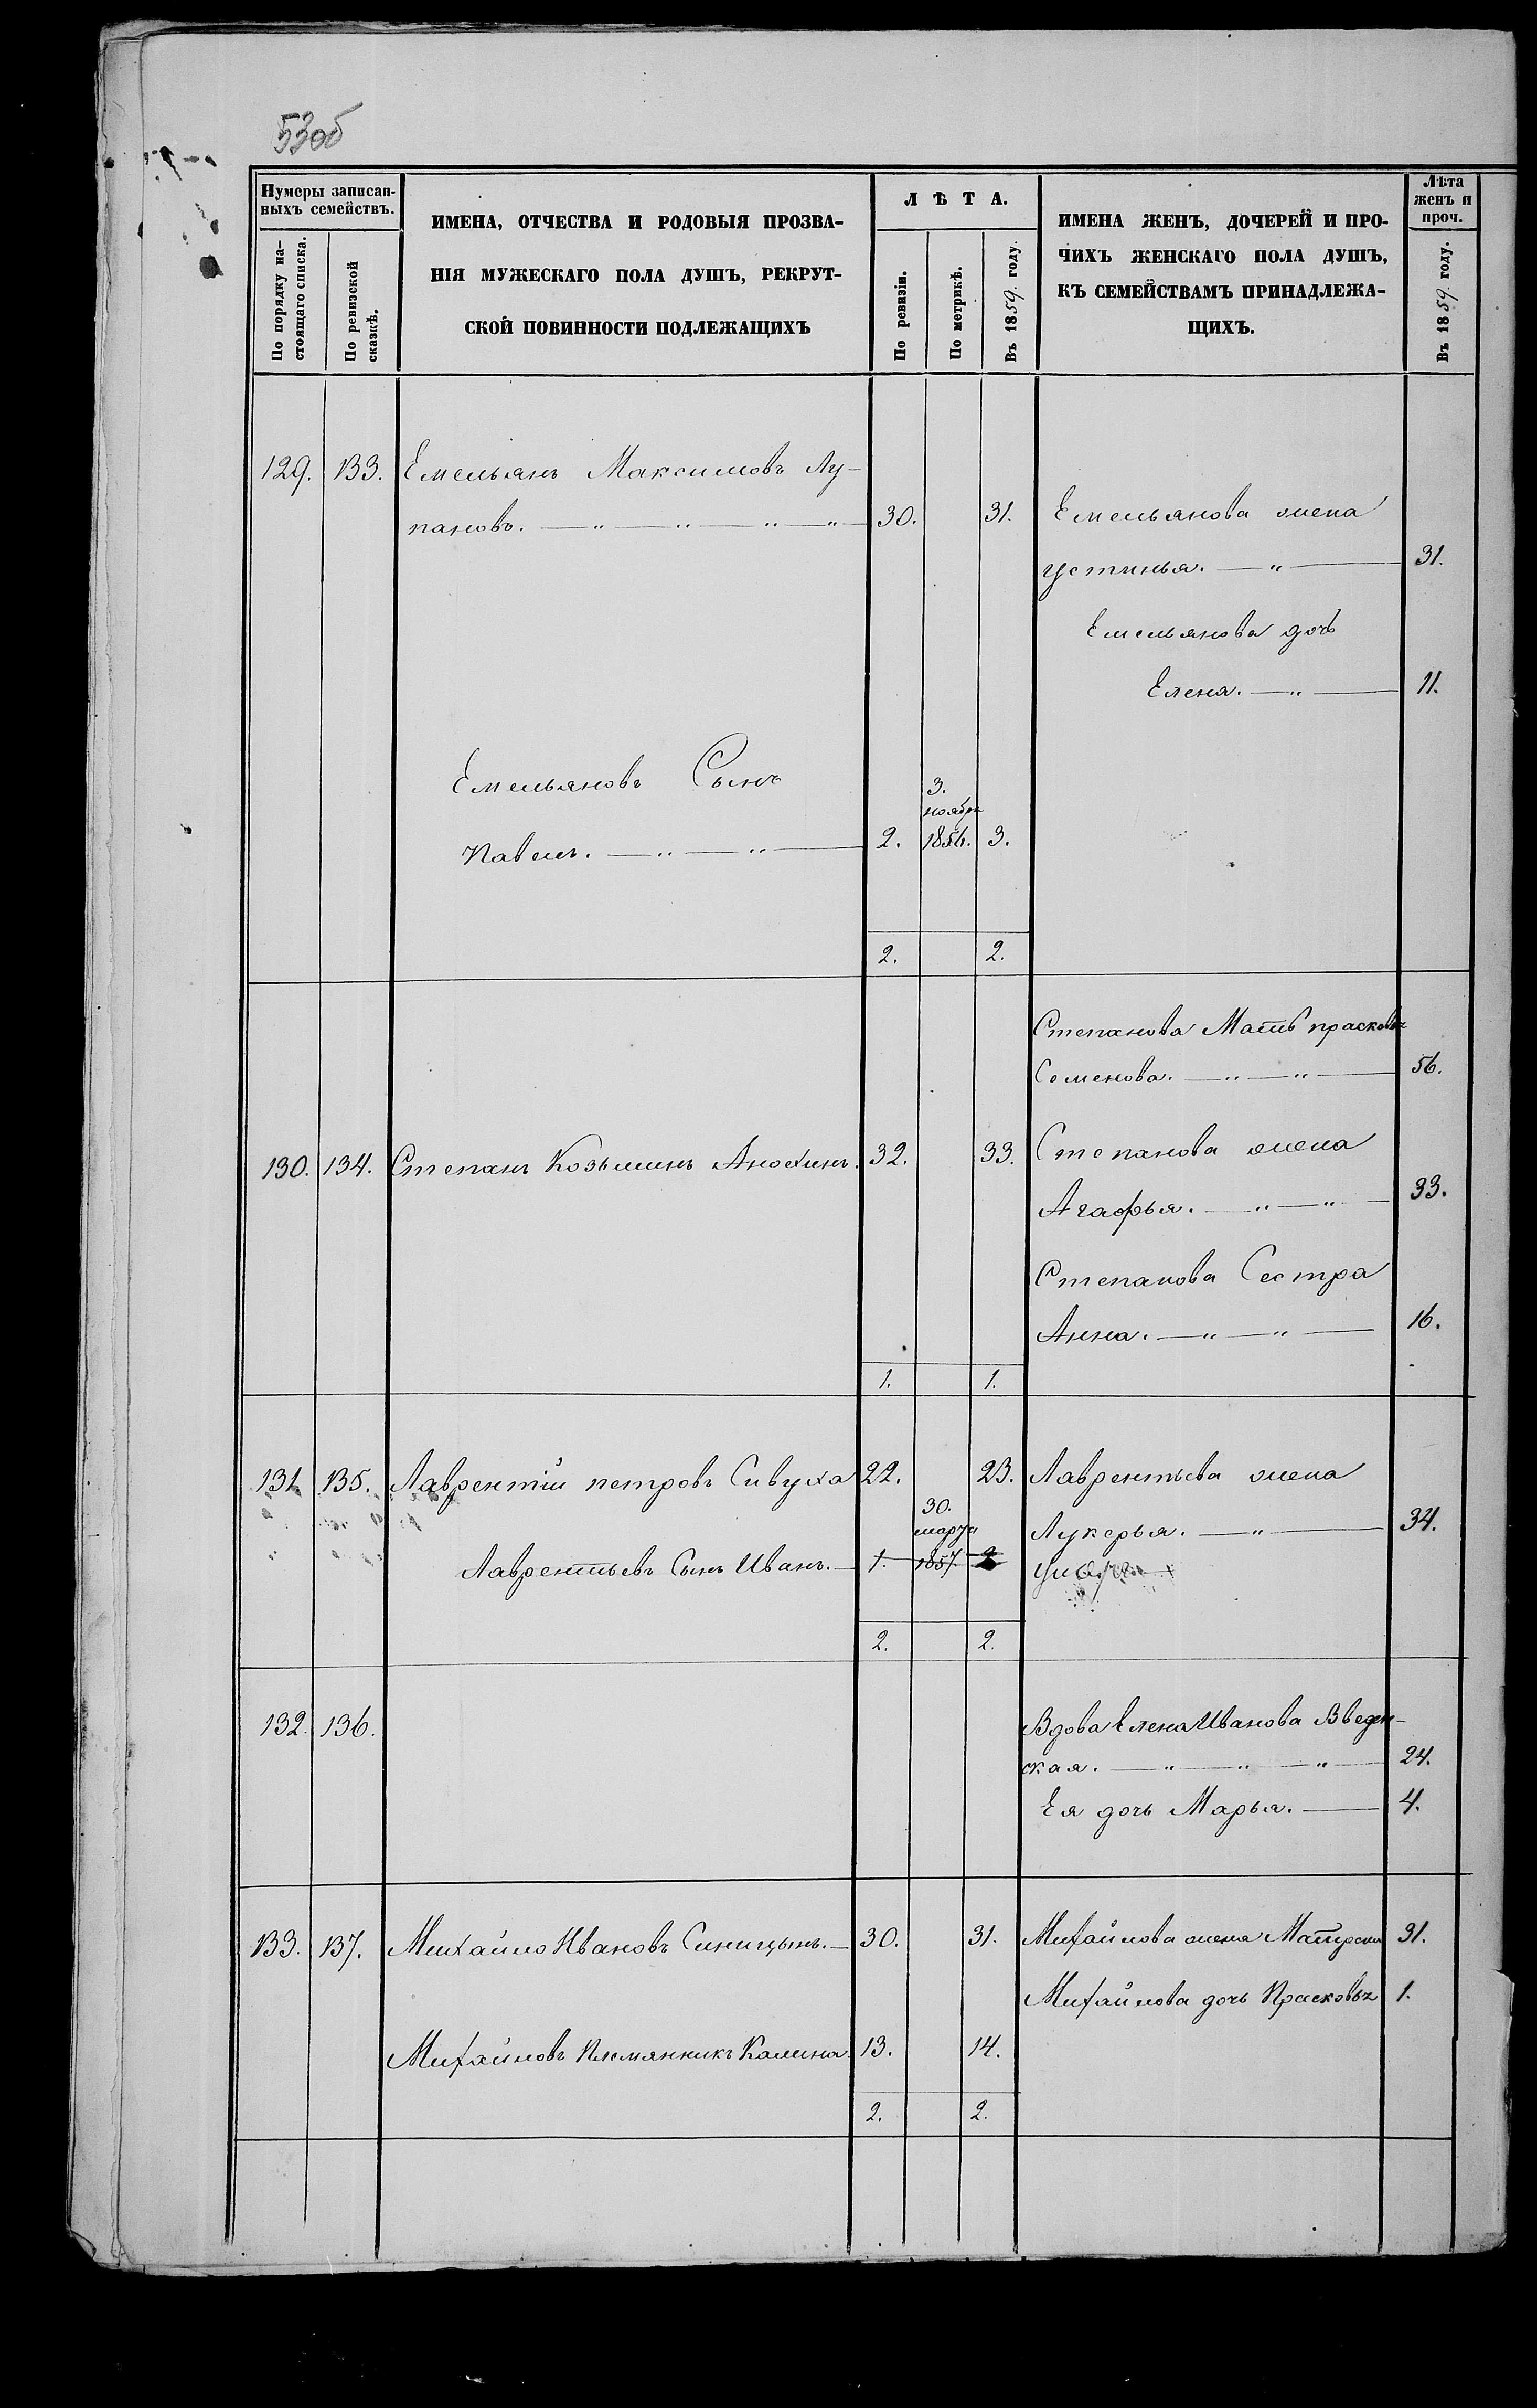 53об
Нумеры записан-
ныхъ семействъ.
По порядку на-
стоящаго списка.
По ревизской
сказкѣ.
ИМЕНА, ОТЧЕСТВА И РОДОВЫЯ ПРОЗВА-
НІЯ МУЖЕСКАГО ПОЛА ДУШЪ, РЕКРУТ-
СКОЙ ПОВИННОСТИ ПОДЛЕЖАЩИХЪ
ЛѢТА.
По ревизіи.
По метрикѣ.
Въ 1859 году.
ИМЕНА ЖЕНЪ, ДОЧЕРЕЙ И ПРО-
ЧИХЪ ЖЕНСКАГО ПОЛА ДУШЪ,
КЪ СЕМЕЙСТВАМЪ ПРИНАДЛЕЖА-
ЩИХЪ.
Лѣта
женъ и
проч.
Въ 1859 году.
129. 133. Емельянъ Максимовъ Лу-
пановъ. — „ — „ — „ — „ — 30. 31. Емельянова жена
устинья. — „ — 31.
Емельянова дочь
Елена. — „ — 11.
Емельяновъ Сынъ
3.
ноября
Павелъ. — „ — „ — 2. 1856. 3.
2. 2.
Степанова Мать прасковья
Семенова. — „ — „ — 56.
130. 134. Степанъ Козьминъ Анохинъ. 32. 33. Степанова жена
Агафья. — „ — „ — 33.
Степанова Сестра
Анна. — „ — „ — 16.
1. 1.
131. 135. Лаврентій петровъ Сивуха 22. 23. Лаврентьева жена
30.
марта
Лукерья. — „ — 34.
Лаврентьевъ Сынъ Иванъ. — 1. 1857. 2
2. 2.
132. 136. Вдова Елена Иванова Введен-
ская. — „ — „ — „ — 24.
Ея дочь Марья. — 4.
133. 137. Михайло Ивановъ Синицынъ. — 30. 31. Михайлова жена Матрена 31.
Михайлова дочь Прасковья 1.
Михайловъ Племянникъ Калина. 13. 14.
2. 2.